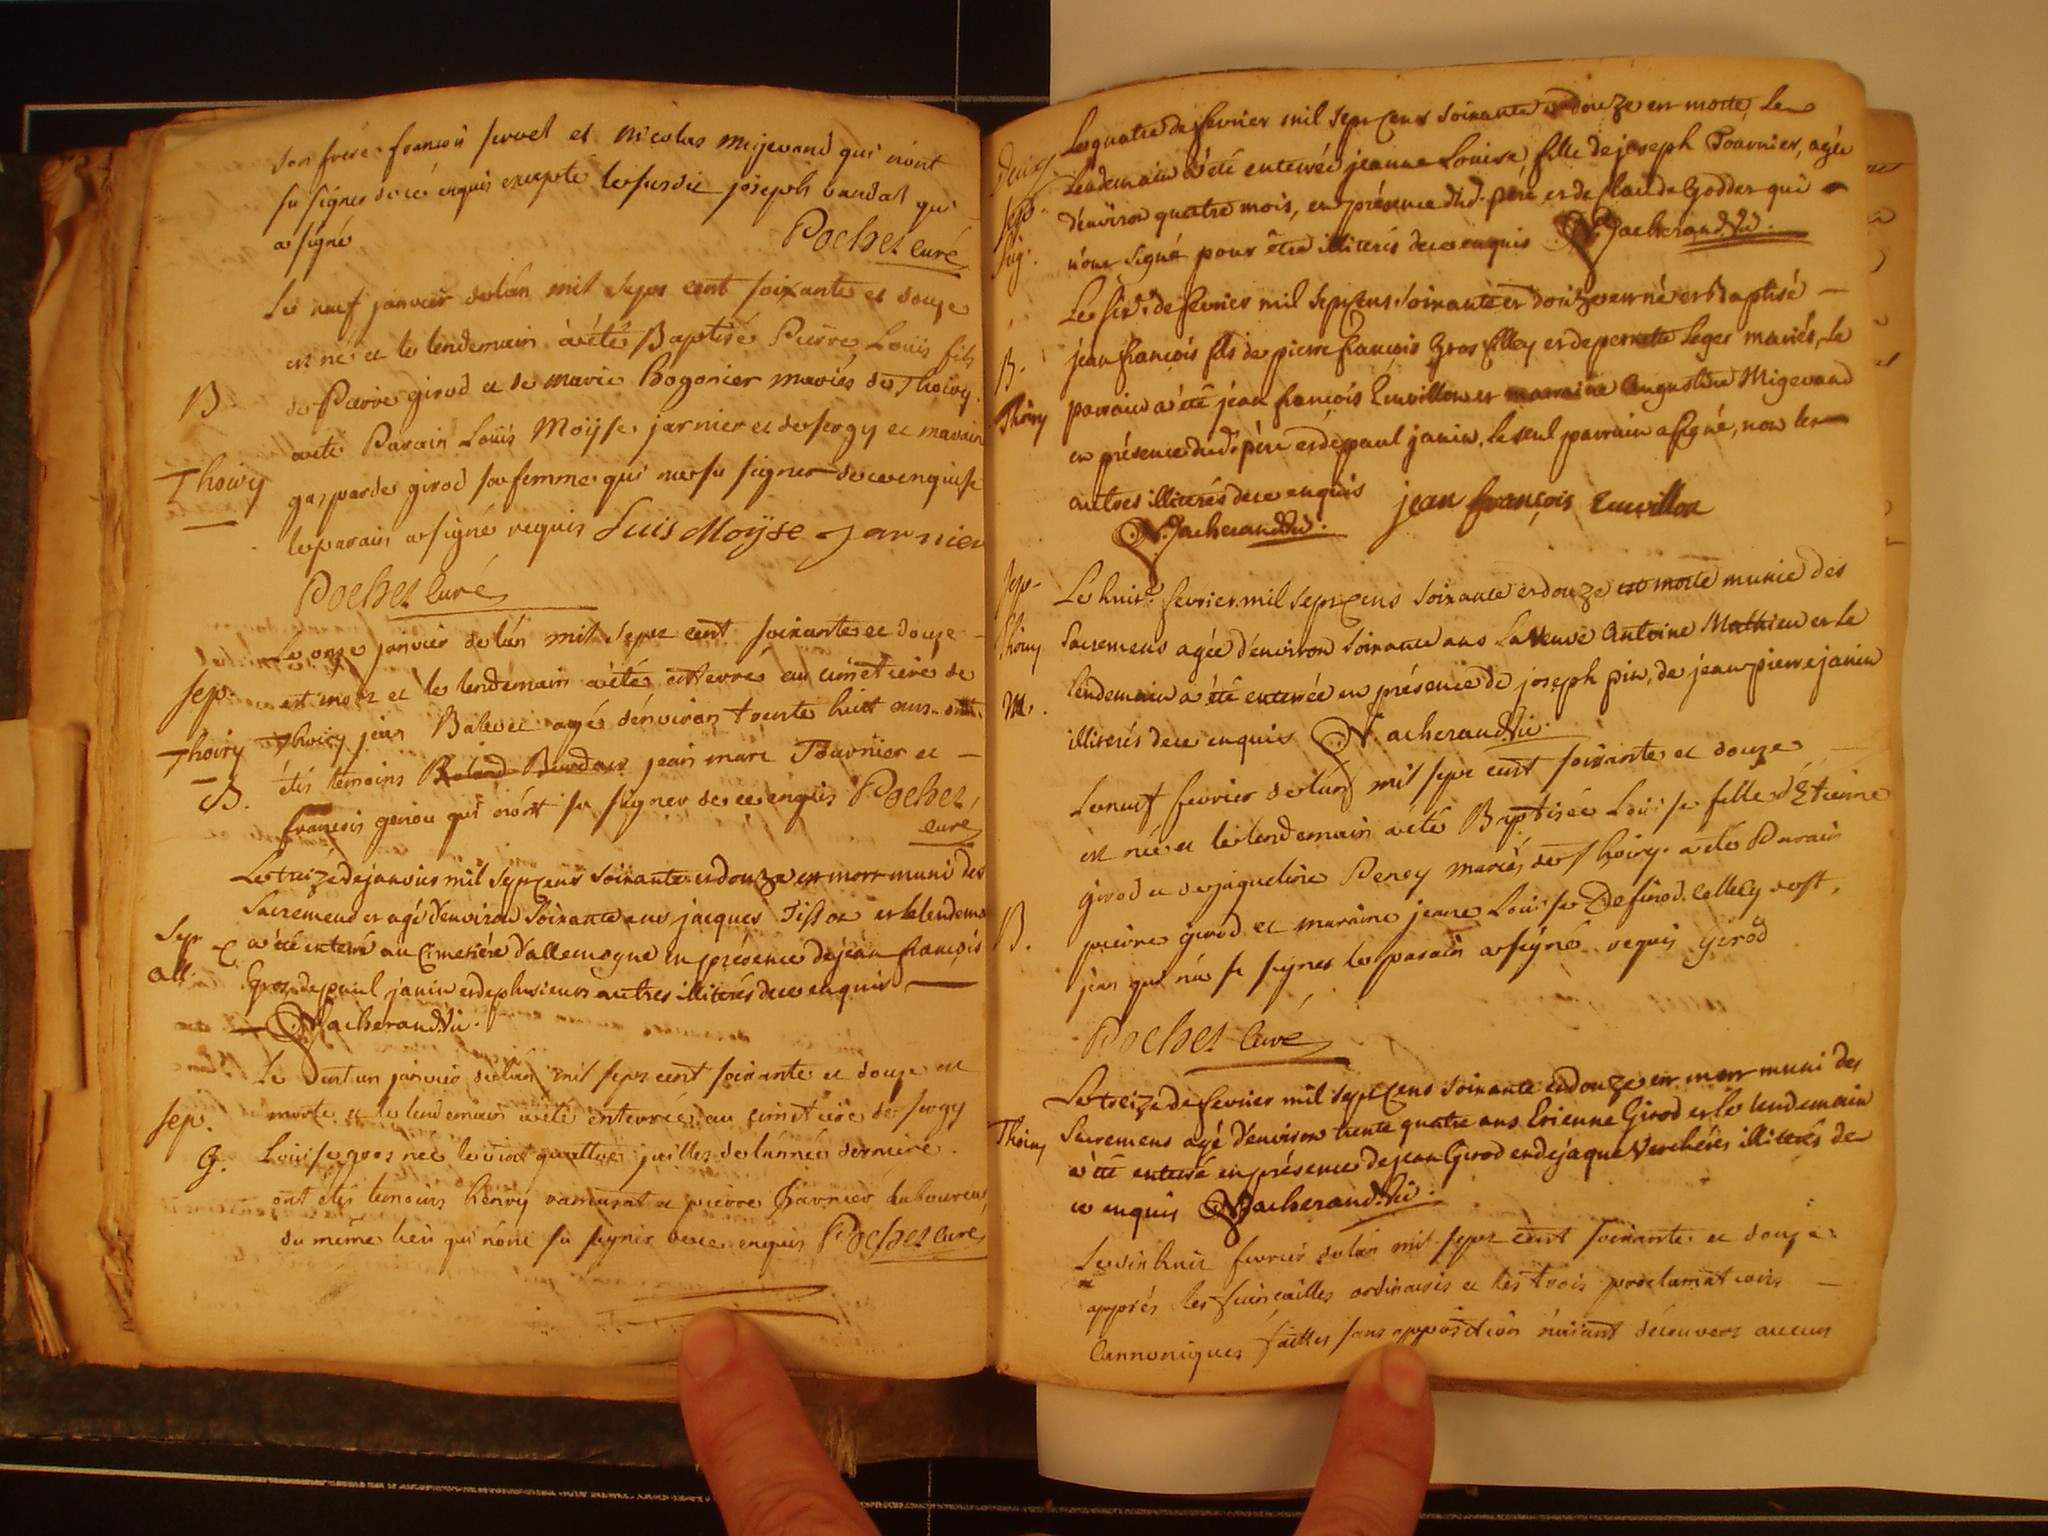 son frere françois servet et Nicolas Migevand qui n'ont
su signer de ce enquis excepté le susdit joseph baudat qui
a signé
Pochet curé
Le neuf janvier de l'an mil sept cent soixante et douze
est né et le lendemain a été Baptisé Pierre Louis fils
B de Pierre girod et de marie hogonier mariés de Thoiry
a été Parain Louis Moÿse jarnier et de sergy et maraine
Thoiry gasparde girod sa femme qui n'a su signer de ce enquise
le parain a signé requis Luis Moÿse Jarnier
Pochet Curé
Le onze janvier de l'an mil sept cent soixante et douze
sep. est mort et le lendemain a été enterré au cimetiere de
Thoiry Thoiry jean Balevet agé d'environ trente huit ans ont
B. étés temoins Roland Bourdour jean marc Tournier et
françois genou qui n'ont su signer de ce enquis Pochet
curé
Le treize de janvier mil sept cens soixante et douze est mort muni des
Sacremens et agé d'environ soixante ans jacques Tissot et le lendemain
Sep. a été enterré au Cimetiére d'allemogne en présence de jean françois
All. Gros, de paul janin et de plusieurs autres illiterés de ce enquis
N. Jacherand Vic.
Le vint un janvier de l'an mil sept cent soixante et douze est
sep. morte et le lendemain a été enterrée au cimetiere de sergy
G. Louise gros née le vint quattre juillet de l'année derniere.
ont étés temoins henry ramusat et pierre jarnier laboureurs
du méme lieu qui n'ont su signer de ce enquis Pochet curé
Le quatre de fevrier mil sept cens soixante et douze est morte, le
lendemain a été enterrée jeanne Louise fille de joseph Tournier, agée
sep. d'environ quatre mois, en présence dud. pére et de claude Godder qui
n'ont signé pour être illiterés de ce enquis N. Jacherand Vic.
Le six de fevrier mil sept cens soixante et douze est né et baptisé
B. jean françois fils de pierre françois Gros filley et de pernette Leger mariés, le
Thoiry parrain a été jean françois Emvillon et marraine Augustine Migevand
en présence dud. pére et de paul janin. le seul parrain a signé, non les
autres illiterés de ce enquis jean françois Emvillon
N. Jacherand Vic.
sep. Le huit fevrier mil sept cens soixante et douze est morte munie des
Thoiry Sacremens agée d'environ soixante ans La Veuve Antoine Mathieu et le
M. lendemain a été enterrée en présence de joseph pin, de jean pierre janin
illiterés de ce enquis N. Jacherand Vic.
Le neuf fevrier de l'an mil sept cent soixante et douze
est née et le lendemain a été Baptisée Louise fille d'Étienne
girod et de jaqueline Peney mariés de Thoiry. a été Parain
B. pierre girod et maraine jeane Louise Definod
jean qui n'a su signer le parain a signé requis girod
Pochet Curé
Le treize de fevrier mil sept cens soixante et douze est mort muni des
Thoiry Sacremens agé d'environ trente quatre ans Etienne Girod et le lendemain
a été enterré en présence de jean Girod et de jaque Verchéres illiterés de
ce enquis N. Jacherand Vic.
Le dix huit fevrier de l'an mil sept cent soixante et douze
apprés les fiançailles ordinaires et les trois proclamations
Cannoniques faittes sans opposition n'aiant découvert aucun